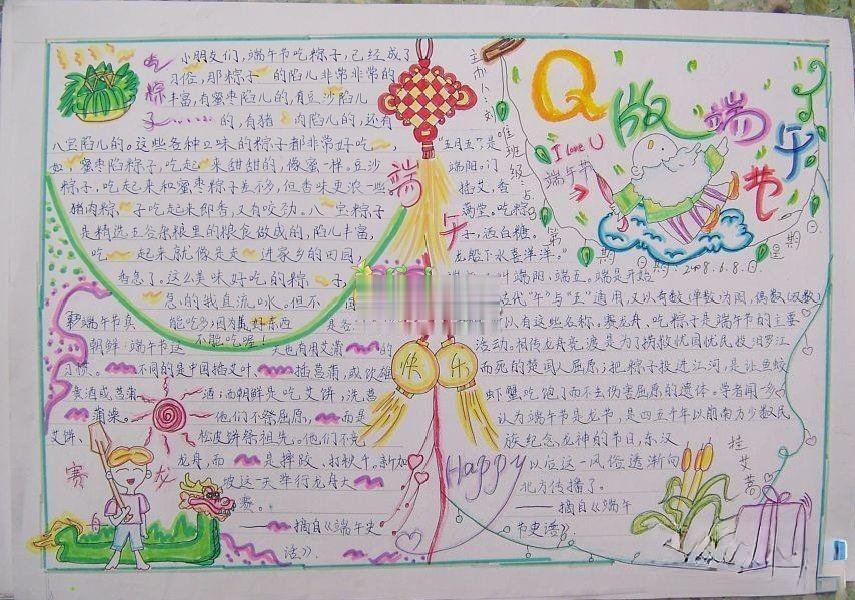 Q版端午节
I love U
端午节
吃粽子
小朋友们,端午节吃粽子,已经成了
习俗,那粽子的馅儿非常非常的
丰富,有蜜枣馅儿的,有豆沙馅儿
的,有猪肉馅儿的,还有
八宝馅儿的。这些各种口味的粽子都非常好吃
蜜枣馅粽子,吃起来甜甜的,像蜜一样。豆沙
粽子,吃起来和蜜枣粽子差不多,但香味更浓一些
猪肉粽子吃起来即香,又有咬劲。八宝粽子
是精选五谷杂粮里的粮食做成的,馅儿丰富,
吃起来就像是走进家乡的田园,
香急了。这么美味好吃的粽子,
的我直流口水。但不
能吃多,因为
不能吃喔!
端午
快乐
Happy
主办人:刘
班级
第 期
日期:2008.6.8.
星期日
"五月五"是
端阳。门
插艾,香
满堂。吃粽
子,洒白糖。
龙船下水喜洋洋。
叫端阳、端五。端是开始
古代"午"与"五"通用,又以奇数(单数)为阳,偶数(双数)
以有这些名称。赛龙舟、吃粽子是端午节的主要
活动。相传龙舟竞渡是为了拯救忧国忧民投汨罗江
而死的楚国人屈原;把粽子投进江河,是让鱼蛟
虾蟹吃饱了而不去伤害屈原的遗体。学者闻一多
认为端午节是龙节,是四五千年以前南方少数民
族纪念龙神的节日,东汉
以后这一风俗逐渐向
北方传播了。
——摘自《端午
节史话》。
朝鲜端午节这天也有用艾蒲的
习惯。不同的是中国插艾叶、插菖蒲,或饮雄
黄酒或菖蒲酒;而朝鲜是吃艾饼、洗菖
蒲澡。他们不祭屈原,而是
艾饼、松皮饼祭祖先。他们不竞
龙舟,而是摔跤、打秋千。新加
坡这一天举行龙舟大
赛。
——摘自《端午史
话》。
赛龙舟
挂艾菖